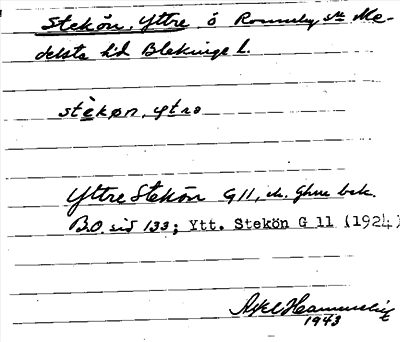 Stekön, Yttre ö Ronneby sn Me-
delsta hd Blekinge l.
stèkøn, ytrə
Yttre Stekön G 11, ek. Ghuu bek.
B.O. sid 133; Ytt. Stekön G 11 (1924)
Axel Hammelin
1943